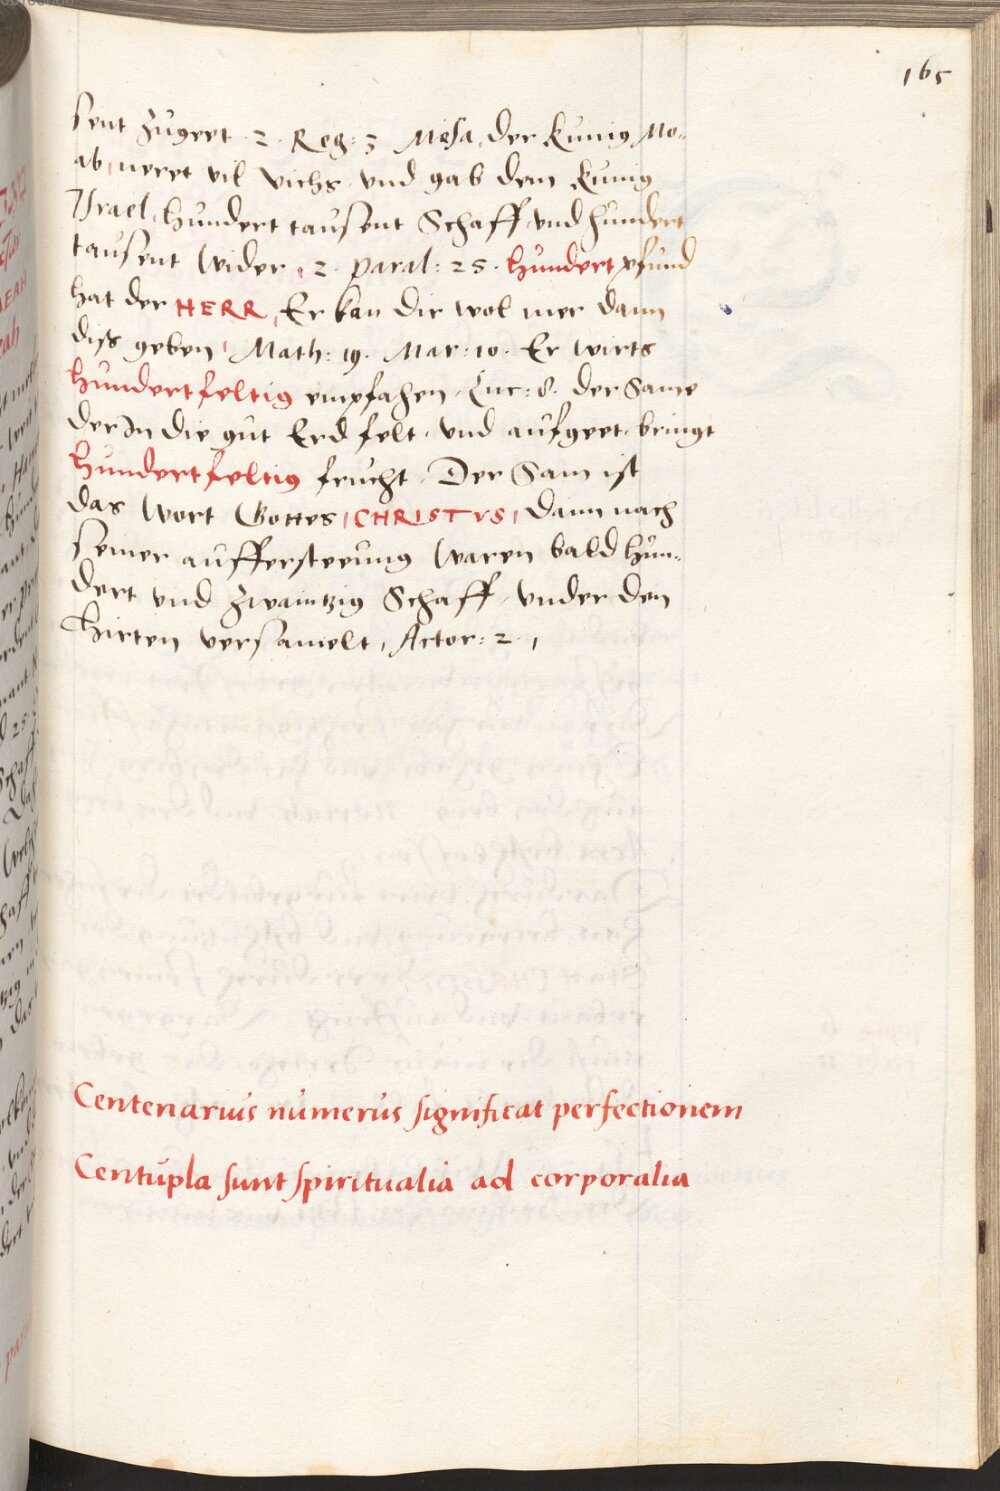 165
sent zugeet . 2 . Reg: 3 Mesa, der Kunig Mo-
ab, neret vil vichs, vnd gab dem Kunig
Israel, hundert tausent Schaff, vnd hundert
tausent Wider, 2 . paral: 25 . hundert pfund
hat der HERR, Er kan dir wol mer dann
diss geben, Math: 19. Mar: 10. Er wirts
hundertfeltig empfahen, Luc: 8. der Same
der In die gut Erd felt, vnd aufgeet, bringt
hundertfeltig frucht, Der Sam ist
das Wort Gottes, CHRISTVS, dann nach
seiner auffersteeung waren bald hun-
dert vnd zwaintzig Schaff, vnder den
Hirten versamelt, Actor: 2 ,
Centenarius numerus significat perfectionem
Centupla sunt spiritualia ad corporalia